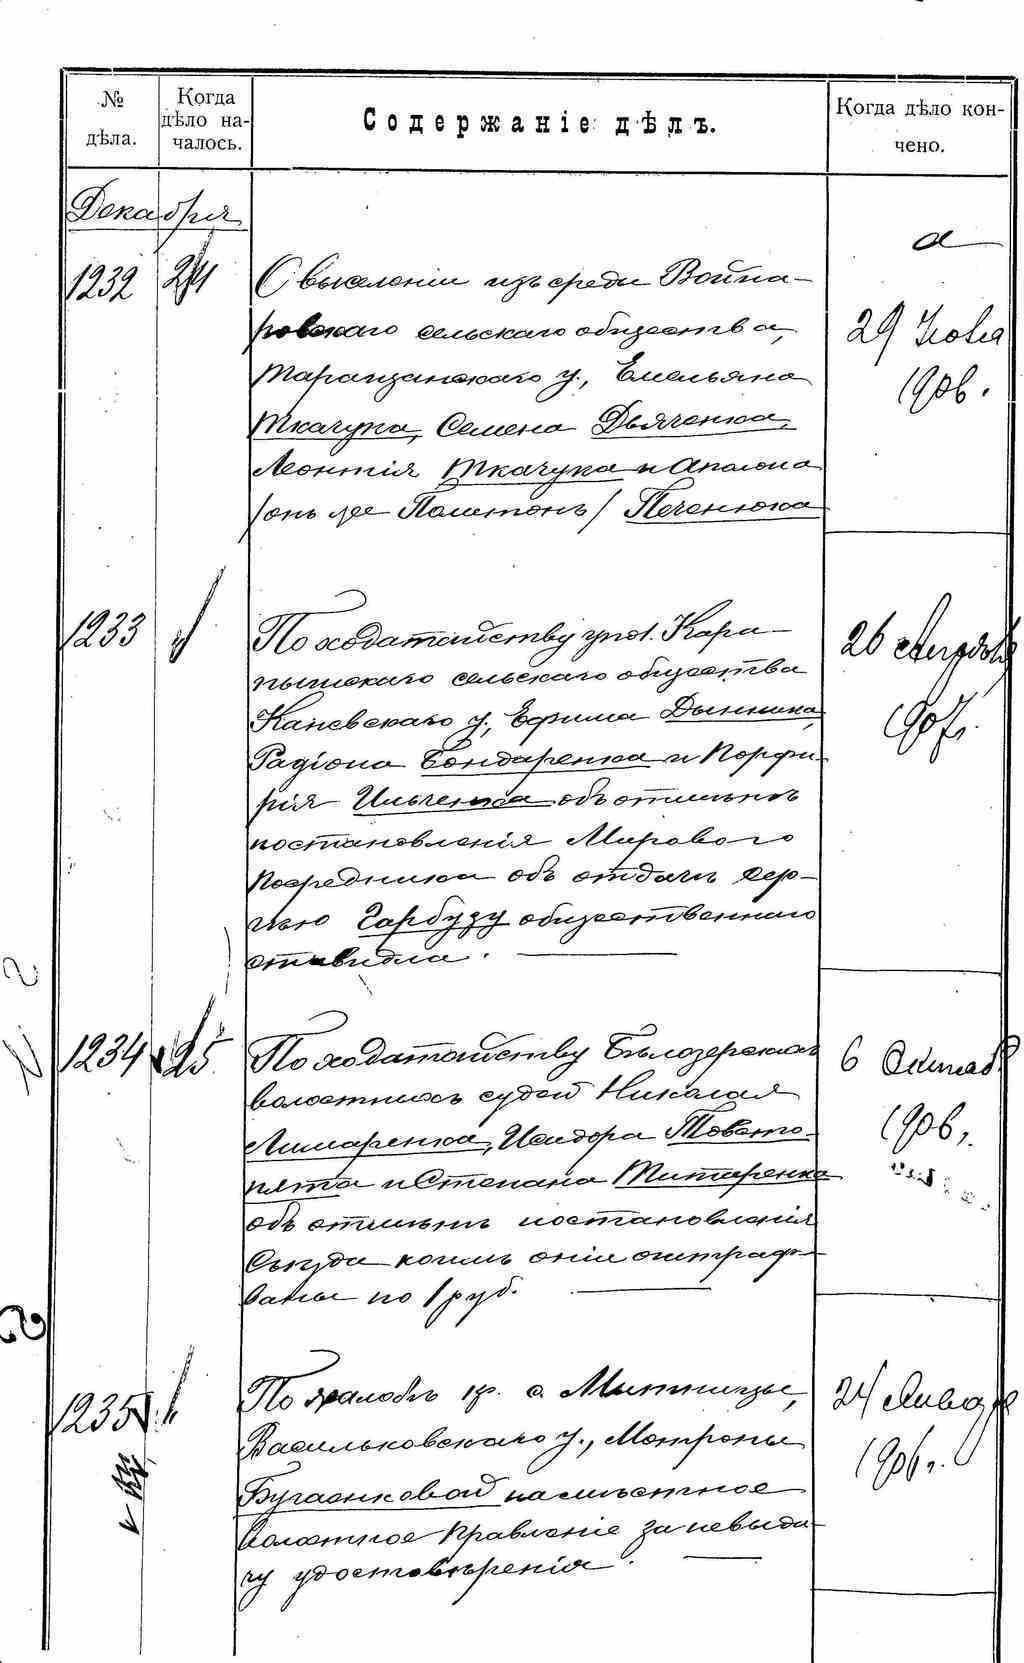 № дѣла.
Когда дѣло началось.
Содержаніе дѣлъ.
Когда дѣло кончено.
Декабря
1232
24
О выселеніи изъ среды Война-
ровскаго сельскаго общества,
Таращанскаго у., Емельяна
Ткачука, Семена Дьяченка,
Леонтія Ткачука и Аполона
/онъ же Полетонъ/ Печенюка
29 Ноября
1906.
1233
По ходатайству упол. Кара-
пышскаго сельскаго общества
Каневскаго у., Ефима Дынника,
Радіона Бондаренка и Порфи-
рія Ильченка объ отмѣнѣ
постановленія Мирового
Посредника объ отдачѣ Сер-
гѣю Гарбузу общественнаго
ставидла.
26 Августа
1907.
1234
25
По ходатайству Бѣлозерскихъ
волостныхъ судей Николая
Лимаренка, Исидора Товсто-
пята и Степана Титаренка
объ отмѣнѣ постановленія
Съѣзда коимъ они оштрафо-
ваны по 1 руб.
6 Октяб
1906.
1235
По жалобѣ кр. с. Мытницы,
Васильковскаго у., Мотроны
Бугаенковой на мѣстное
Волостное Правленіе за невыда-
чу удостовѣренія.
24 Января
1906.